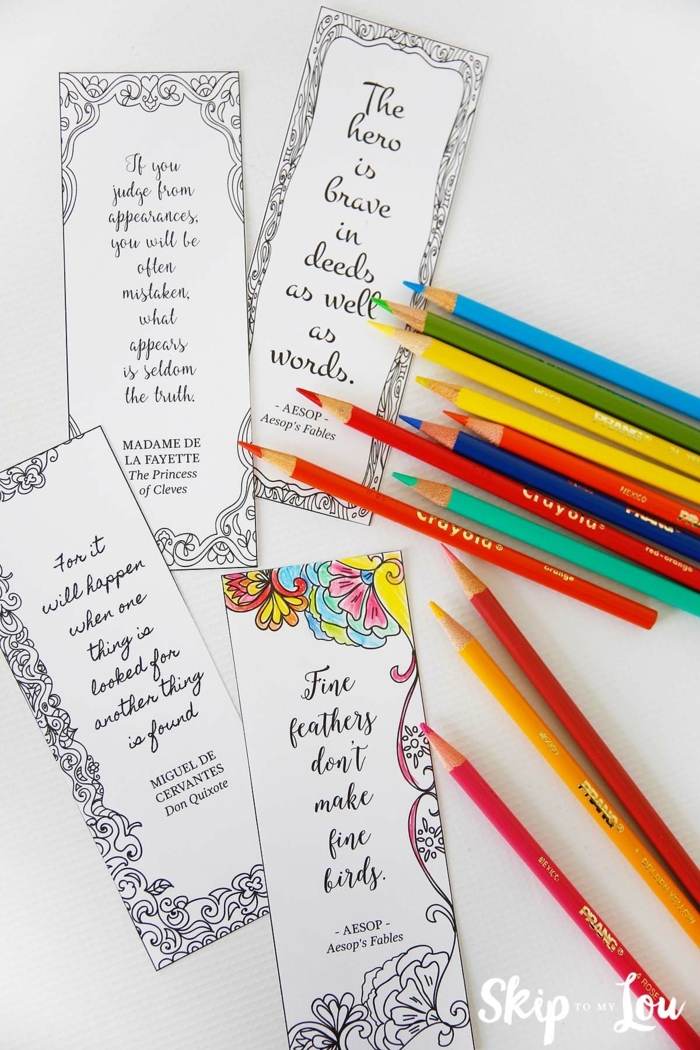 If you
judge from
appearances,
you will be
often
mistaken,
what
appears
is seldom
the truth.
MADAME DE
LA FAYETTE
The Princess
of Cleves
The
hero
is
brave
in
deeds
as well
as
words.
- AESOP -
Aesop's Fables
For it
will happen
when one
thing is
looked for
another thing
is found
MIGUEL DE
CERVANTES
Don Quixote
Fine
feathers
don't
make
fine
birds.
- AESOP -
Aesop's Fables
MEXICO PRANG
MEXICO PRANG
Crayola® red-orange
Crayola® orange
MEXICO PRANG®
MEXICO PRANG® ROSE
Skip TO MY Lou